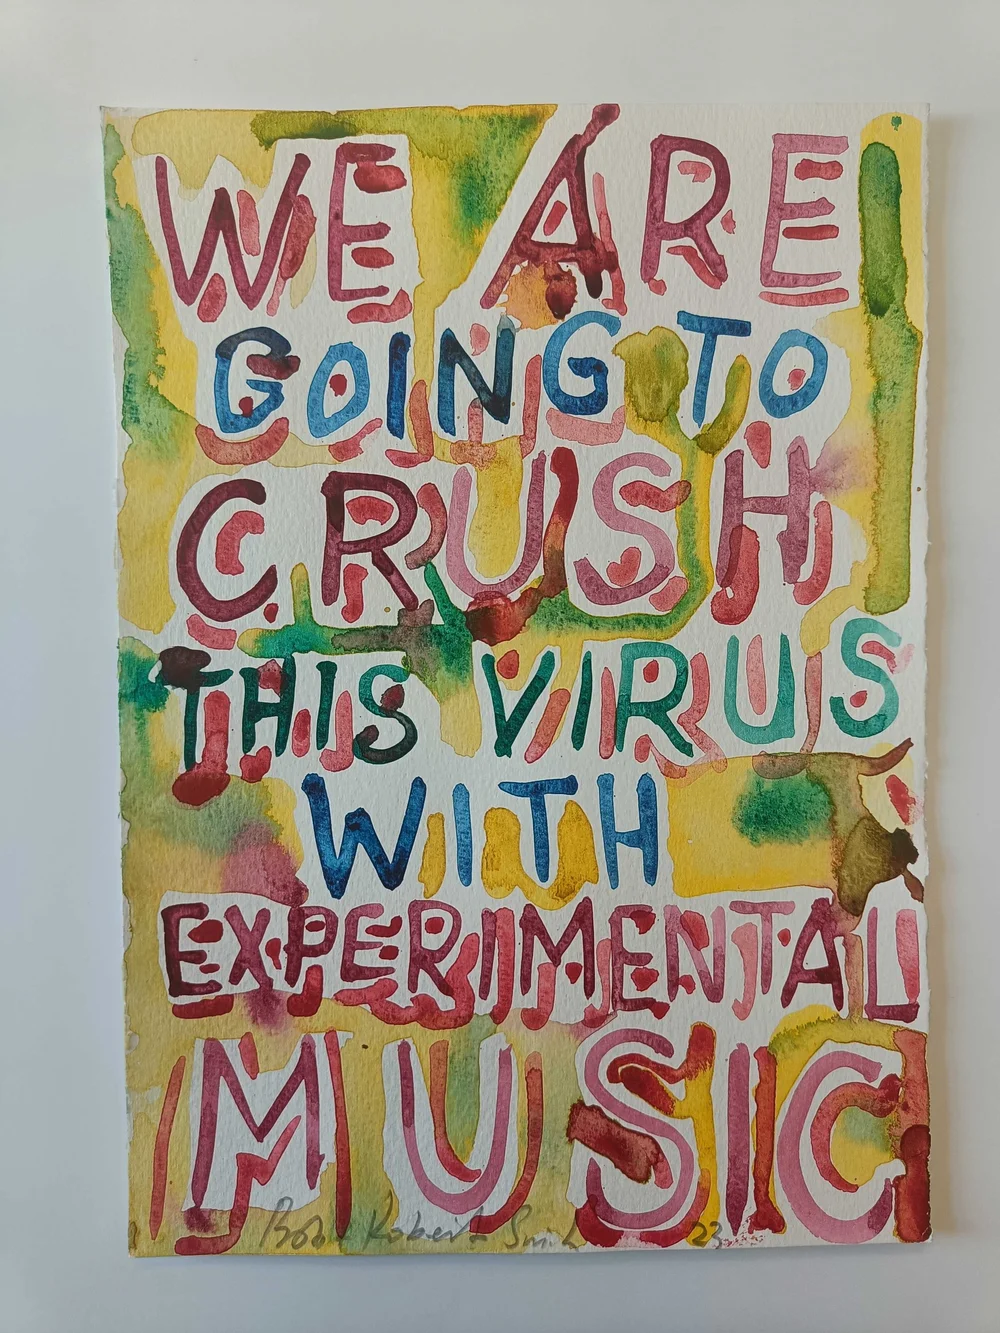 WE ARE
GOING TO
CRUSH
THIS VIRUS
WITH
EXPERIMENTAL
MUSIC
Bob & Roberta Smith 23